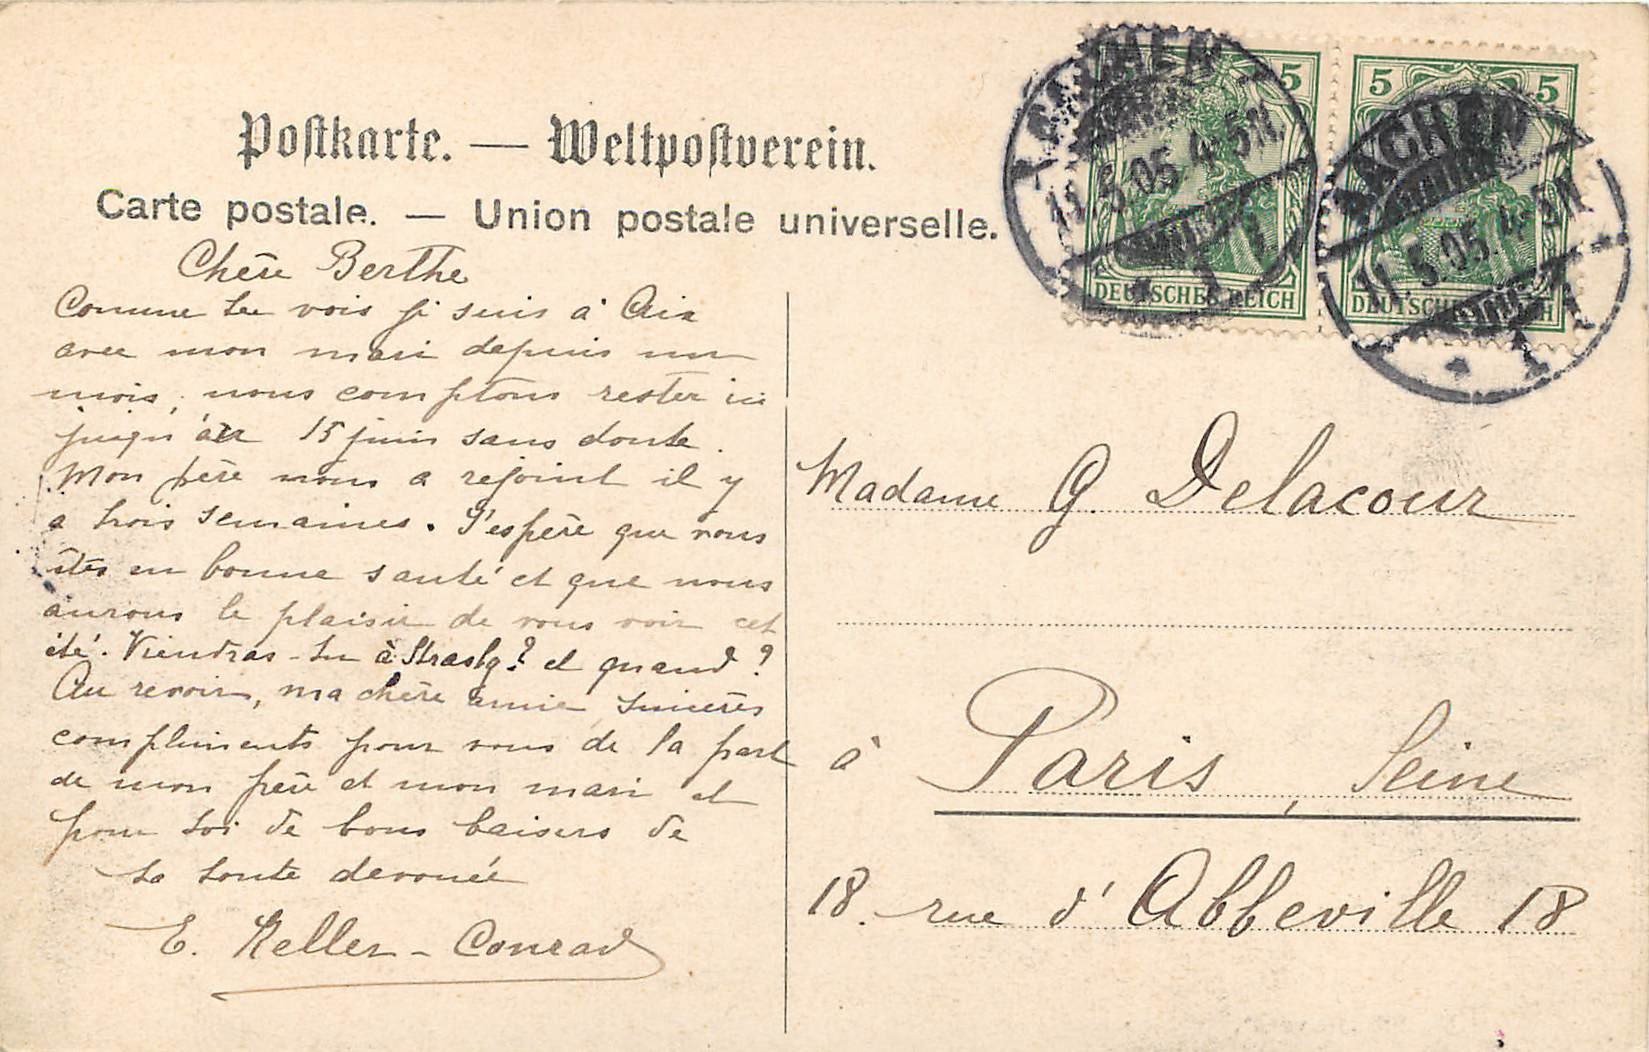 Postkarte. — Weltpostverein.
Carte postale. — Union postale universelle.
Chère Berthe
Comme tu vois je suis à Aix
avec mon mari depuis un
mois, nous comptons rester ici
jusqu'au 15 juin sans doute.
Mon père nous a rejoint il y
a trois semaines. J'espère que vous
êtes en bonne santé et que nous
aurons le plaisir de vous voir cet
été. Viendras-tu à Strasbg? et quand?
Au revoir, ma chère amie sincères
compliments pour vous de la part
de mon père et mon mari et
pour toi de bons baisers de
ta toute dévouée
E. Keller-Conrad
5
DEUTSCHES REICH
AACHEN
11.5.05. 4-5N.
* 1
5 5
DEUTSCHES REICH
AACHEN
11.5.05. 4-5N.
* 1
Madame G. Delacour
à Paris, Seine
18. rue d'Abbeville 18